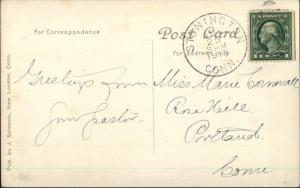 Post Card
For Correspondence
For Address Only
STONINGTON
CONN.
1 CENT 1
Greetings from
Your pastor.
Miss Marie Cornwall
Rose Hill
Portland
Conn.
Pub. by J. Solomon, New London, Conn.